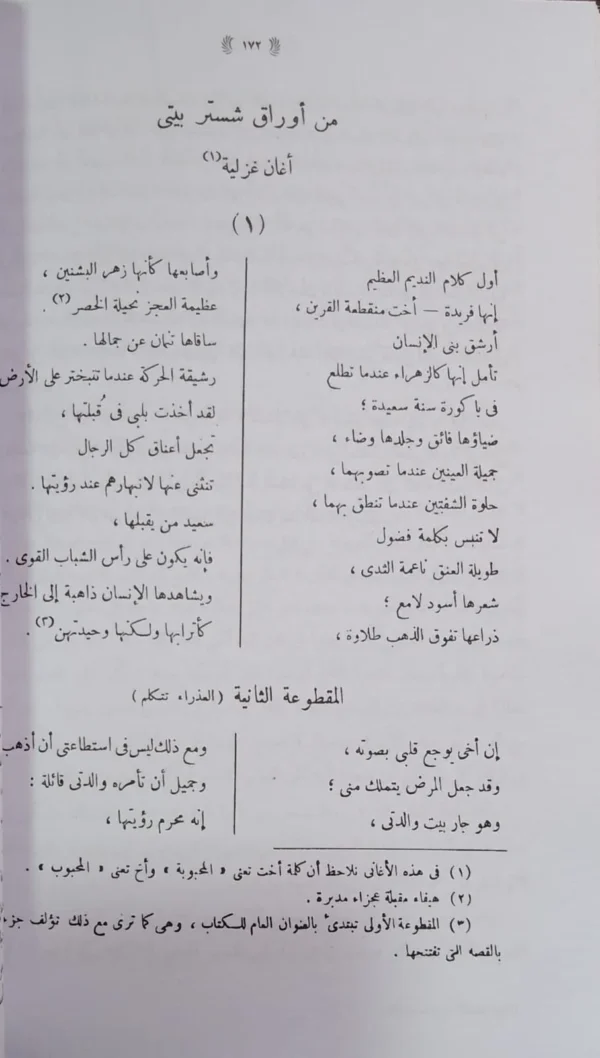 ١٧٢
من أوراق شستر بيتى
أغان غزلية (١)
(١)
أول كلام النديم العظيم
إنها فريدة — أخت منقطعة القرين ،
أرشق بنى الإنسان
تأمل إنها كالزهراء عندما تطلع
فى باكورة سنة سعيدة ؛
ضياؤها فائق وجلدها وضاء ،
جميلة العينين عندما تصوبهما ،
حلوة الشفتين عندما تنطق بهما ،
لا تنبس بكلمة فضول
طويلة العنق ناعمة الثدى ،
شعرها أسود لامع ؛
ذراعها تفوق الذهب طلاوة ،
وأصابعها كأنها زهر البشنين ،
عظيمة العجز نحيلة الخصر (٢) .
ساقاها تنمان عن جمالها .
رشيقة الحركة عندما تتبختر على الأرض
لقد أخذت بلبى فى قُبلتها ،
تجعل أعناق كل الرجال
تنثنى عنها لانبهارهم عند رؤيتها .
سعيد من يقبلها ،
فإنه يكون على رأس الشباب القوى .
ويشاهدها الإنسان ذاهبة إلى الخارج
كأترابها ولكنها وحيدتهن (٣) .
المقطوعة الثانية (العذراء تتكلم)
إن أخى يوجع قلبى بصوته ،
وقد جعل المرض يتملك منى ؛
وهو جار بيت والدتى ،
ومع ذلك ليس فى استطاعتى أن أذهب
وجميل أن تأمره والدتى قائلة :
إنه محرم رؤيتها ،
(١) فى هذه الأغانى نلاحظ أن كلمة أخت تعنى « المحبوبة » وأخ تعنى « المحبوب » .
(٢) هيفاء مقبلة عجزاء مدبرة .
(٣) المقطوعة الأولى تبتدئ بالعنوان العام للكتاب ، وهى كما ترى مع ذلك تؤلف جزء
بالقصه التى تفتتحها .